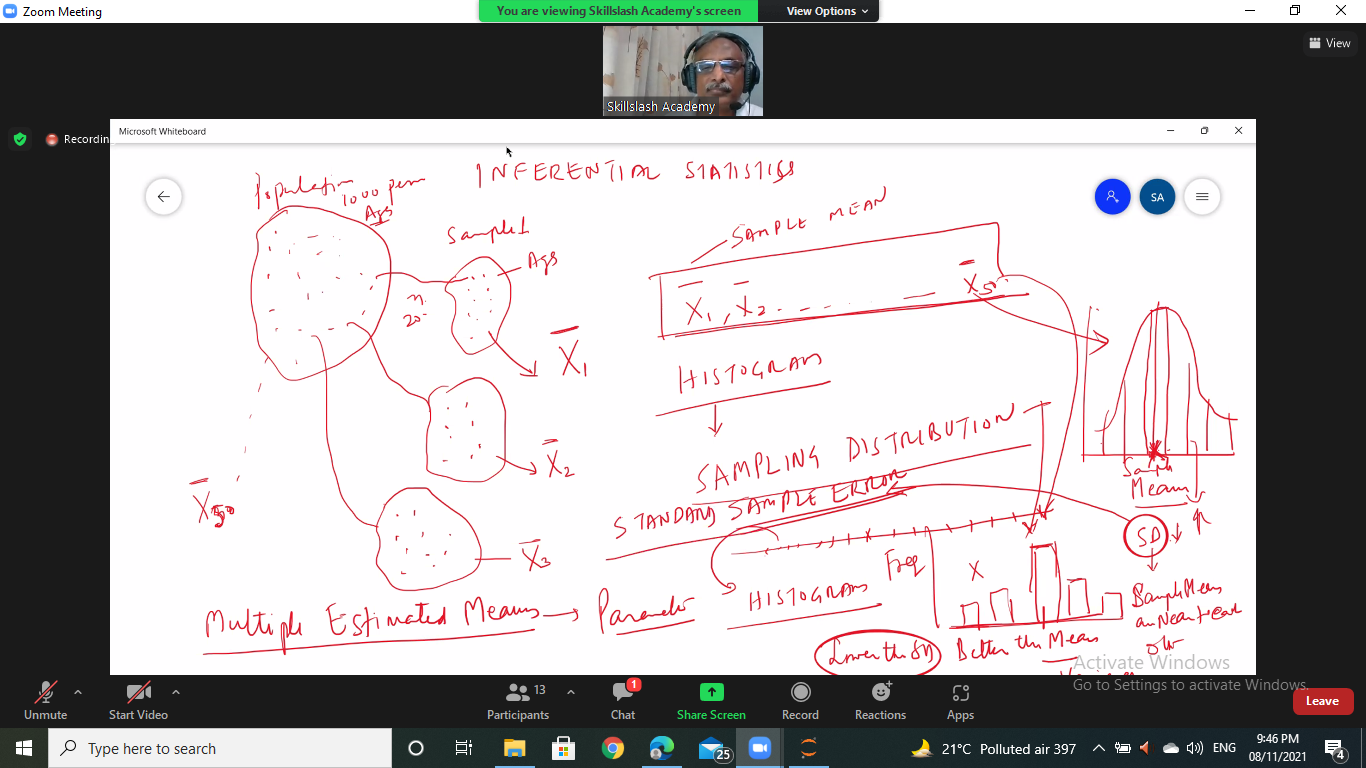 Zoom Meeting
You are viewing Skillslash Academy's screen
View Options
View
Skillslash Academy
Recording
Microsoft Whiteboard
INFERENTIAL STATISTICS
Population
1000
Ags
SA
Sample 1
Ags
SAMPLE MEAN
n
20
X̅1
X̅1, X̅2 - - - - X̅50
HISTOGRAM
X̅2
SAMPLING DISTRIBUTION
Mean
X̅50
STANDARD SAMPLE ERROR
SD
X̅3
Freq
X
HISTOGRAM
Multiple Estimated Means → 
Lower the SD
Better the Mean
Activate Windows
Go to Settings to activate Windows.
Unmute
Start Video
13
Participants
1
Chat
Share Screen
Record
Reactions
Apps
Leave
Type here to search
25
21°C Polluted air 397
ENG
9:46 PM
08/11/2021
4